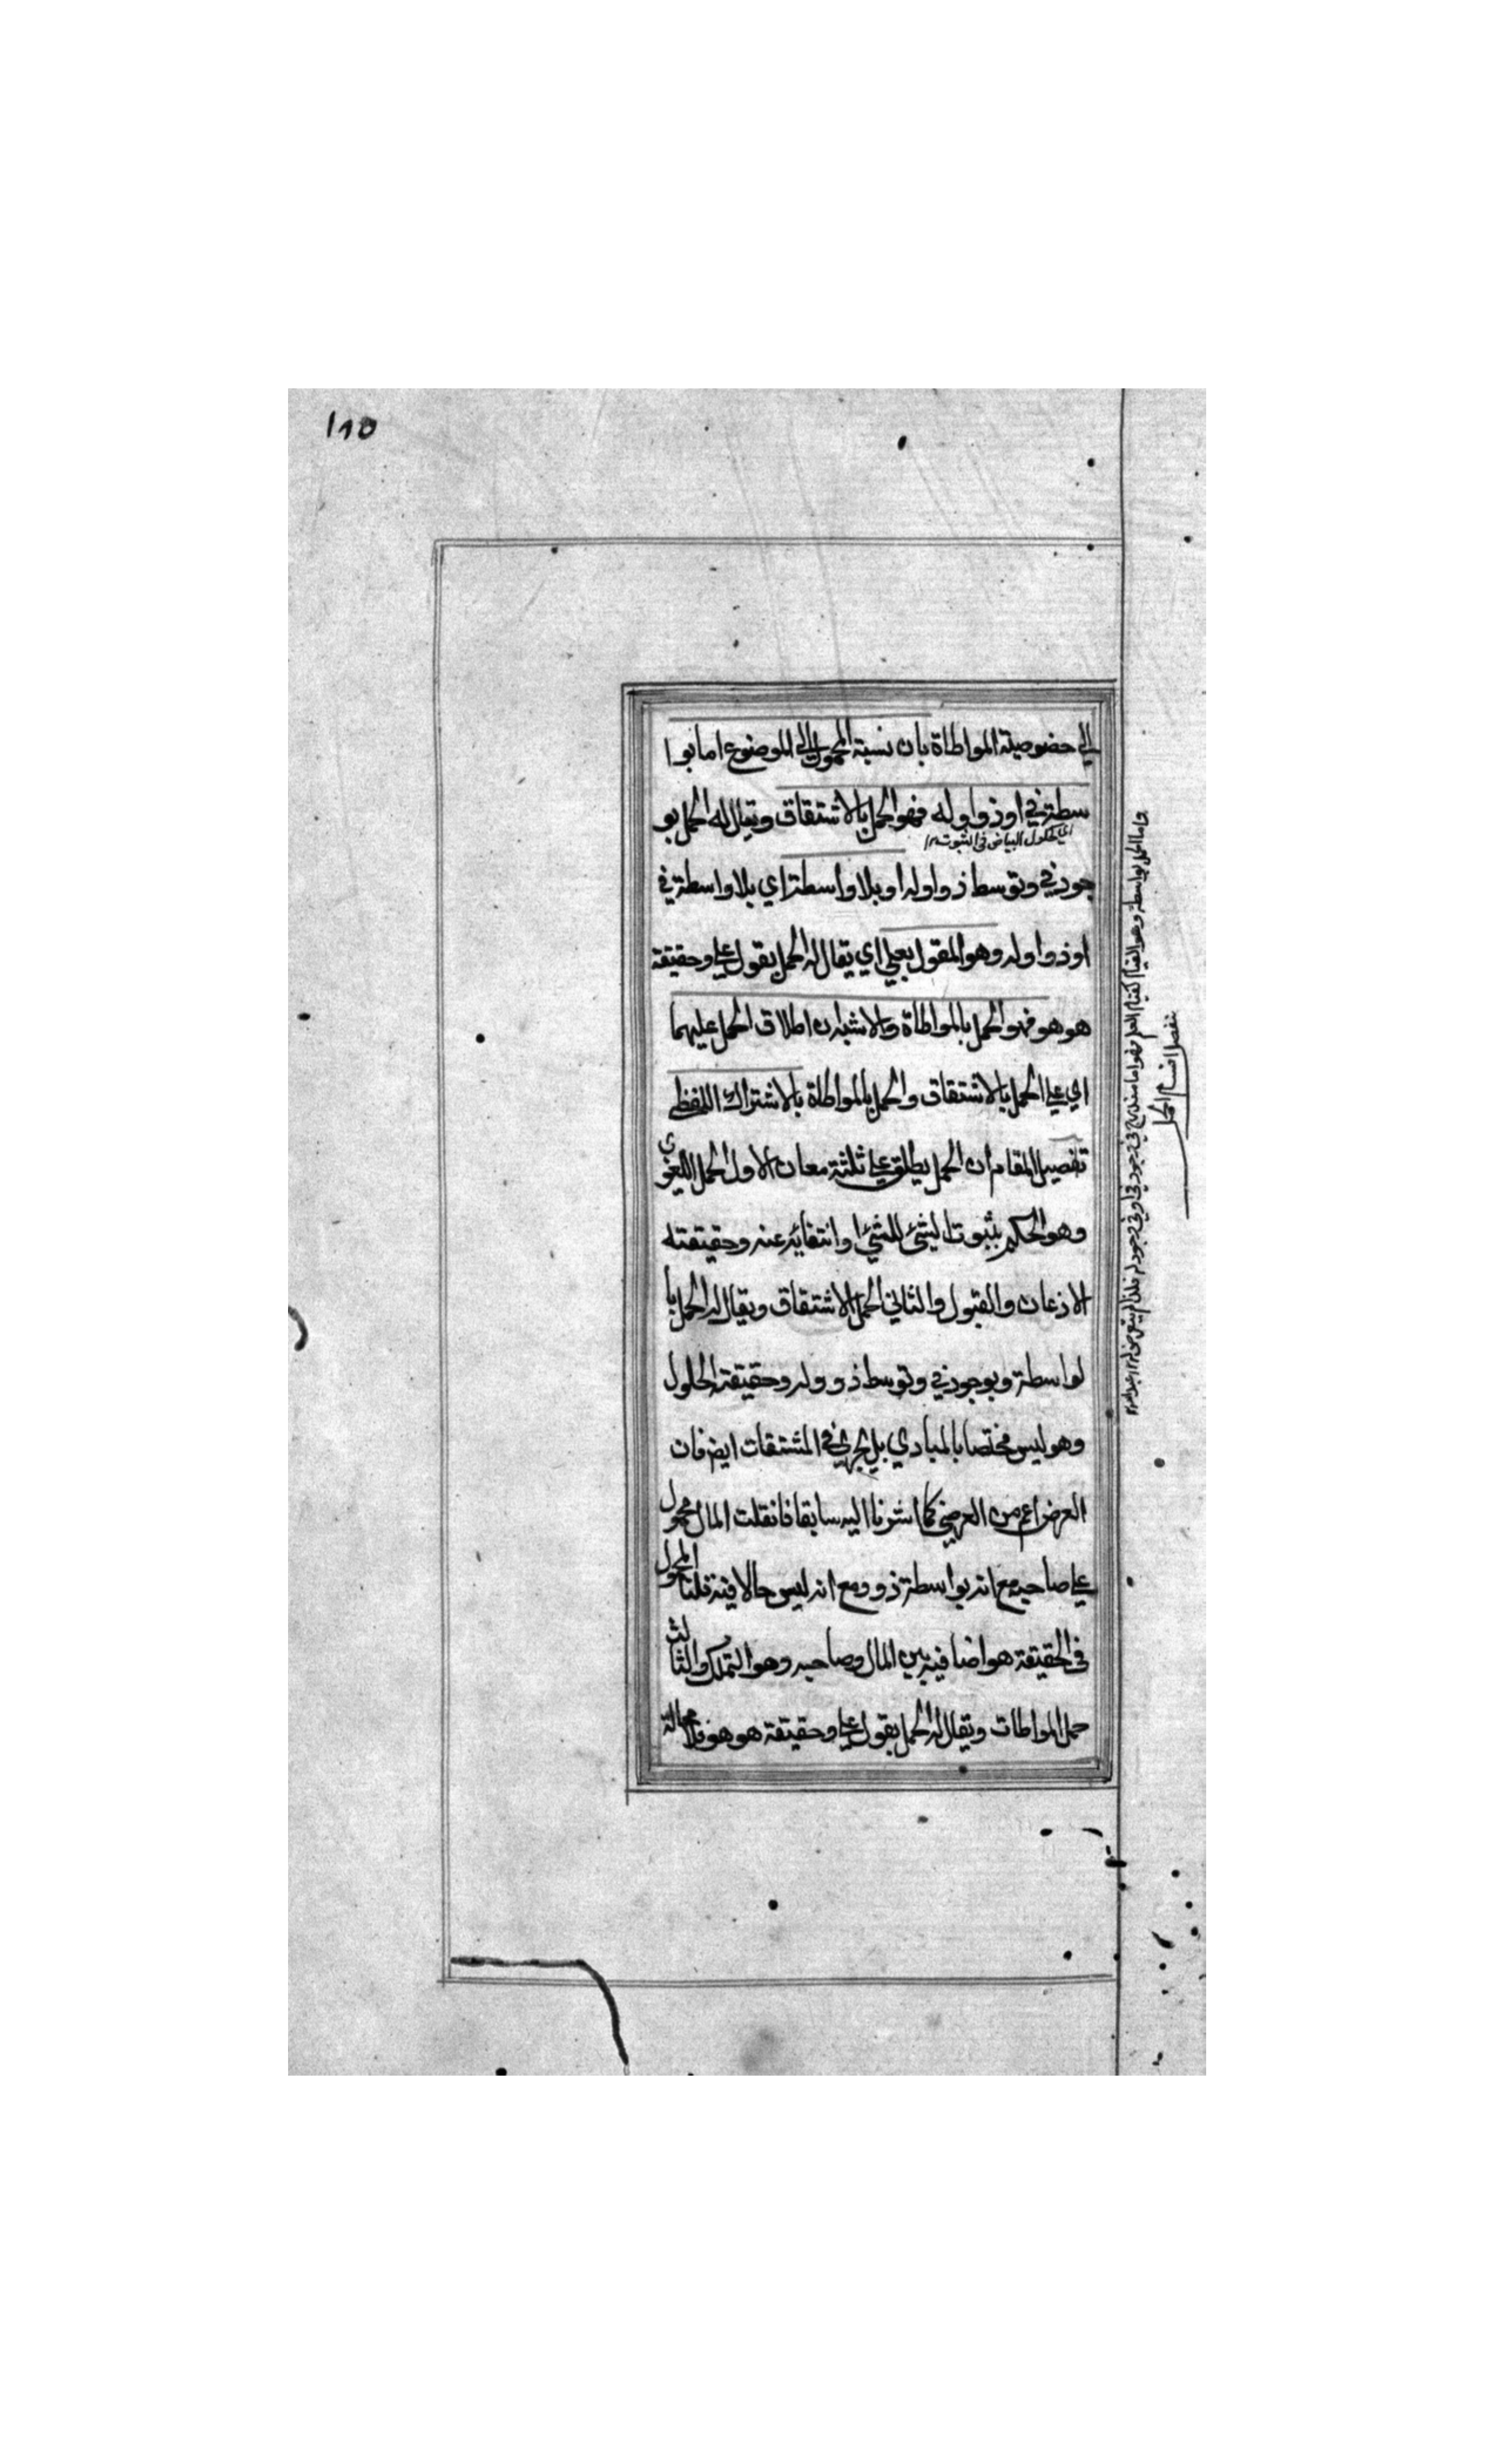 ١٨٥
الي خصوصية المواطاة بان نسبة المحمول الي الموضوع اما بوا
سطة في او ذو او له فهو الحمل بالاشتقاق ويقال له الحمل بو
اي كحلول البياض في الثوب ١٢
جود في وتوسط ذو او له او بلا واسطة اي بلا واسطة في
او ذو او له وهو المقول بعلي اي يقال له الحمل بقول علي وحقيقة
هو هو فهو الحمل بالمواطاة والاشبه ان اطلاق الحمل عليهما
اي علي الحمل بالاشتقاق والحمل بالمواطاة بالاشتراك اللفظي
تفصيل المقام ان الحمل يطلق علي ثلثة معان الاول الحمل اللغوي
وهو الحكم بثبوت الشئ للشئ او انتفائه عنه وحقيقته
الاذعان والقبول والثاني الحمل الاشتقاق ويقال له الحمل با
لواسطة وبوجود في وتوسط ذو وله وحقيقة الحلول
وهو ليس مختصا بالمبادي بل يجري في المشتقات ايضا فان
العرض اعم من العرضي كما اشرنا اليه سابقا فان قلت المال محمول
علي صاحبه مع انه بواسطة ذو ومع انه ليس حالا فيه قلنا المحمول
في الحقيقة هو اضافية بين المال وصاحبه وهو التملك والثالث
حمل المواطات ويقال له الحمل بقول علي وحقيقة هو هو فلا محالة
واما الحمل بواسطة وهو القيام كقيام العلم فهو اما مندرج في وجود في او في وجود له فلذا لم يتعرض له ١٢
تفصيل اقسام الحمل